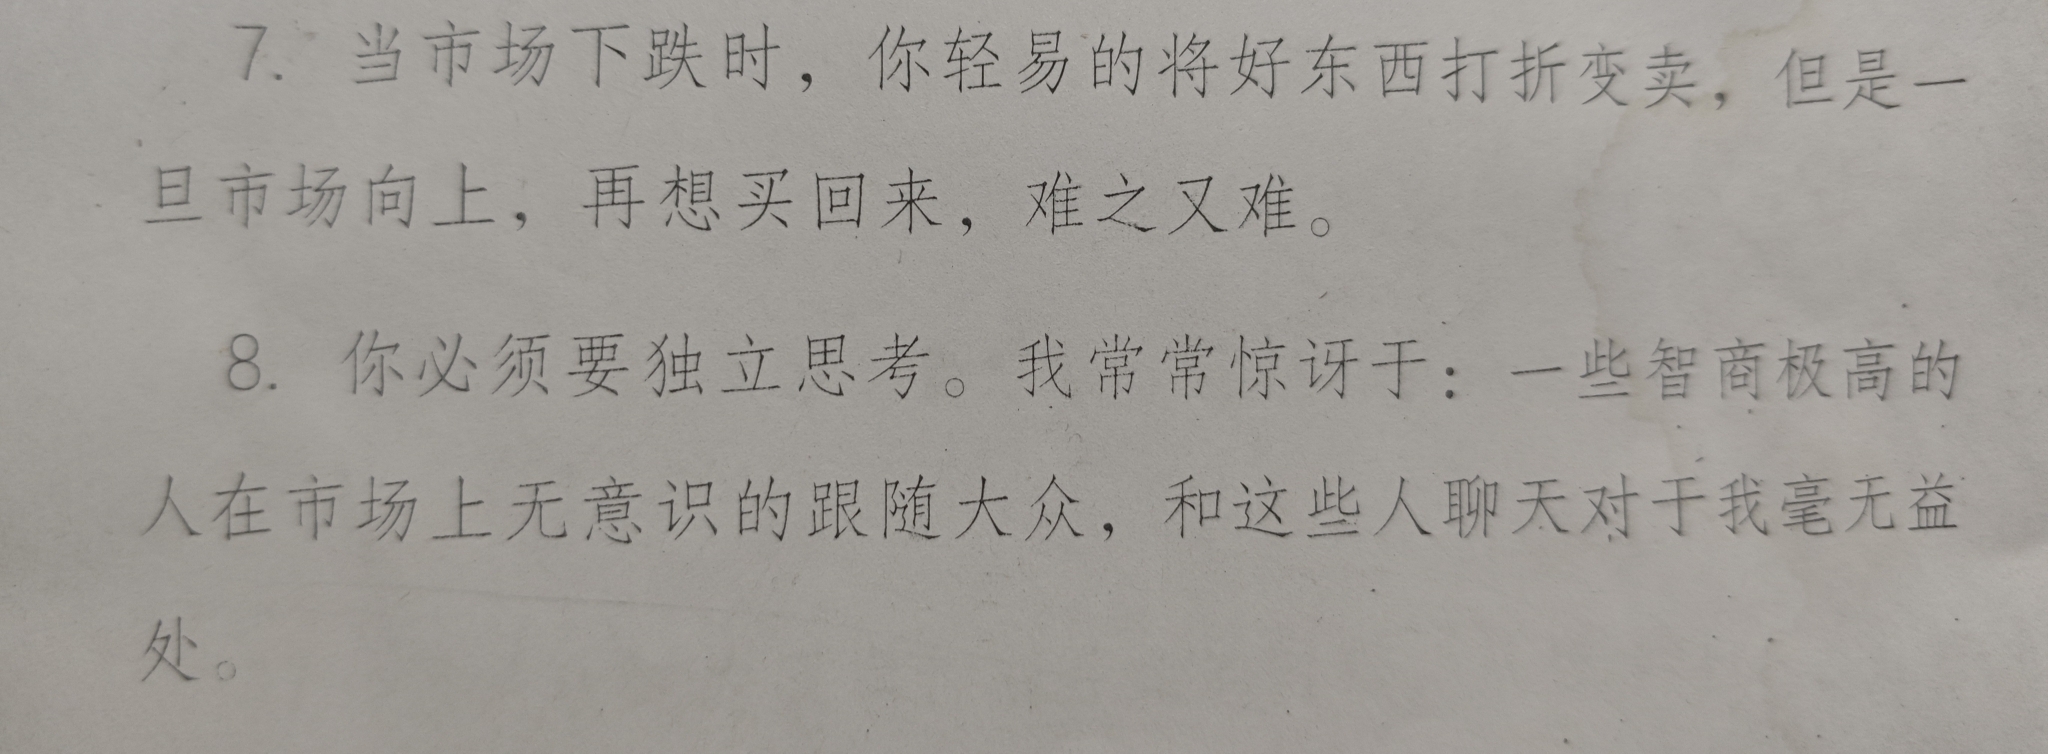 7. 当市场下跌时，你轻易的将好东西打折变卖，但是一
旦市场向上，再想买回来，难之又难。
8. 你必须要独立思考。我常常惊讶于：一些智商极高的
人在市场上无意识的跟随大众，和这些人聊天对于我毫无益
处。